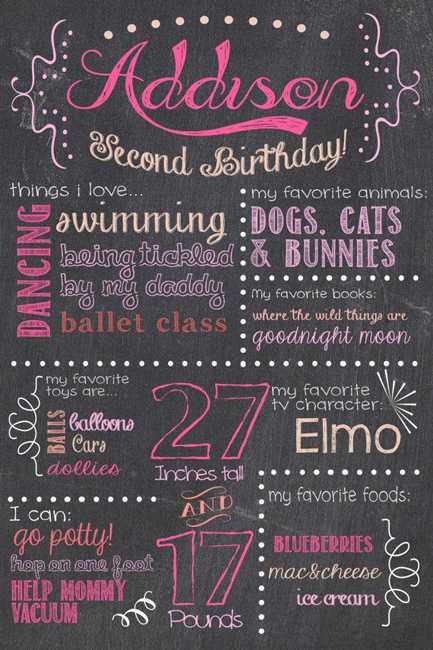 Addison
Second Birthday!
things i love...
DANCING
swimming
being tickled
by my daddy
ballet class
my favorite animals:
DOGS, CATS
& BUNNIES
My favorite books:
where the wild things are
goodnight moon
my favorite
toys are...
BALLS
balloons
Cars
dollies
27
Inches tall
AND
17
Pounds
my favorite
tv character:
Elmo
I can:
go potty!
hop on one foot
HELP MOMMY
VACUUM
my favorite foods:
BLUEBERRIES
mac&cheese
ice cream